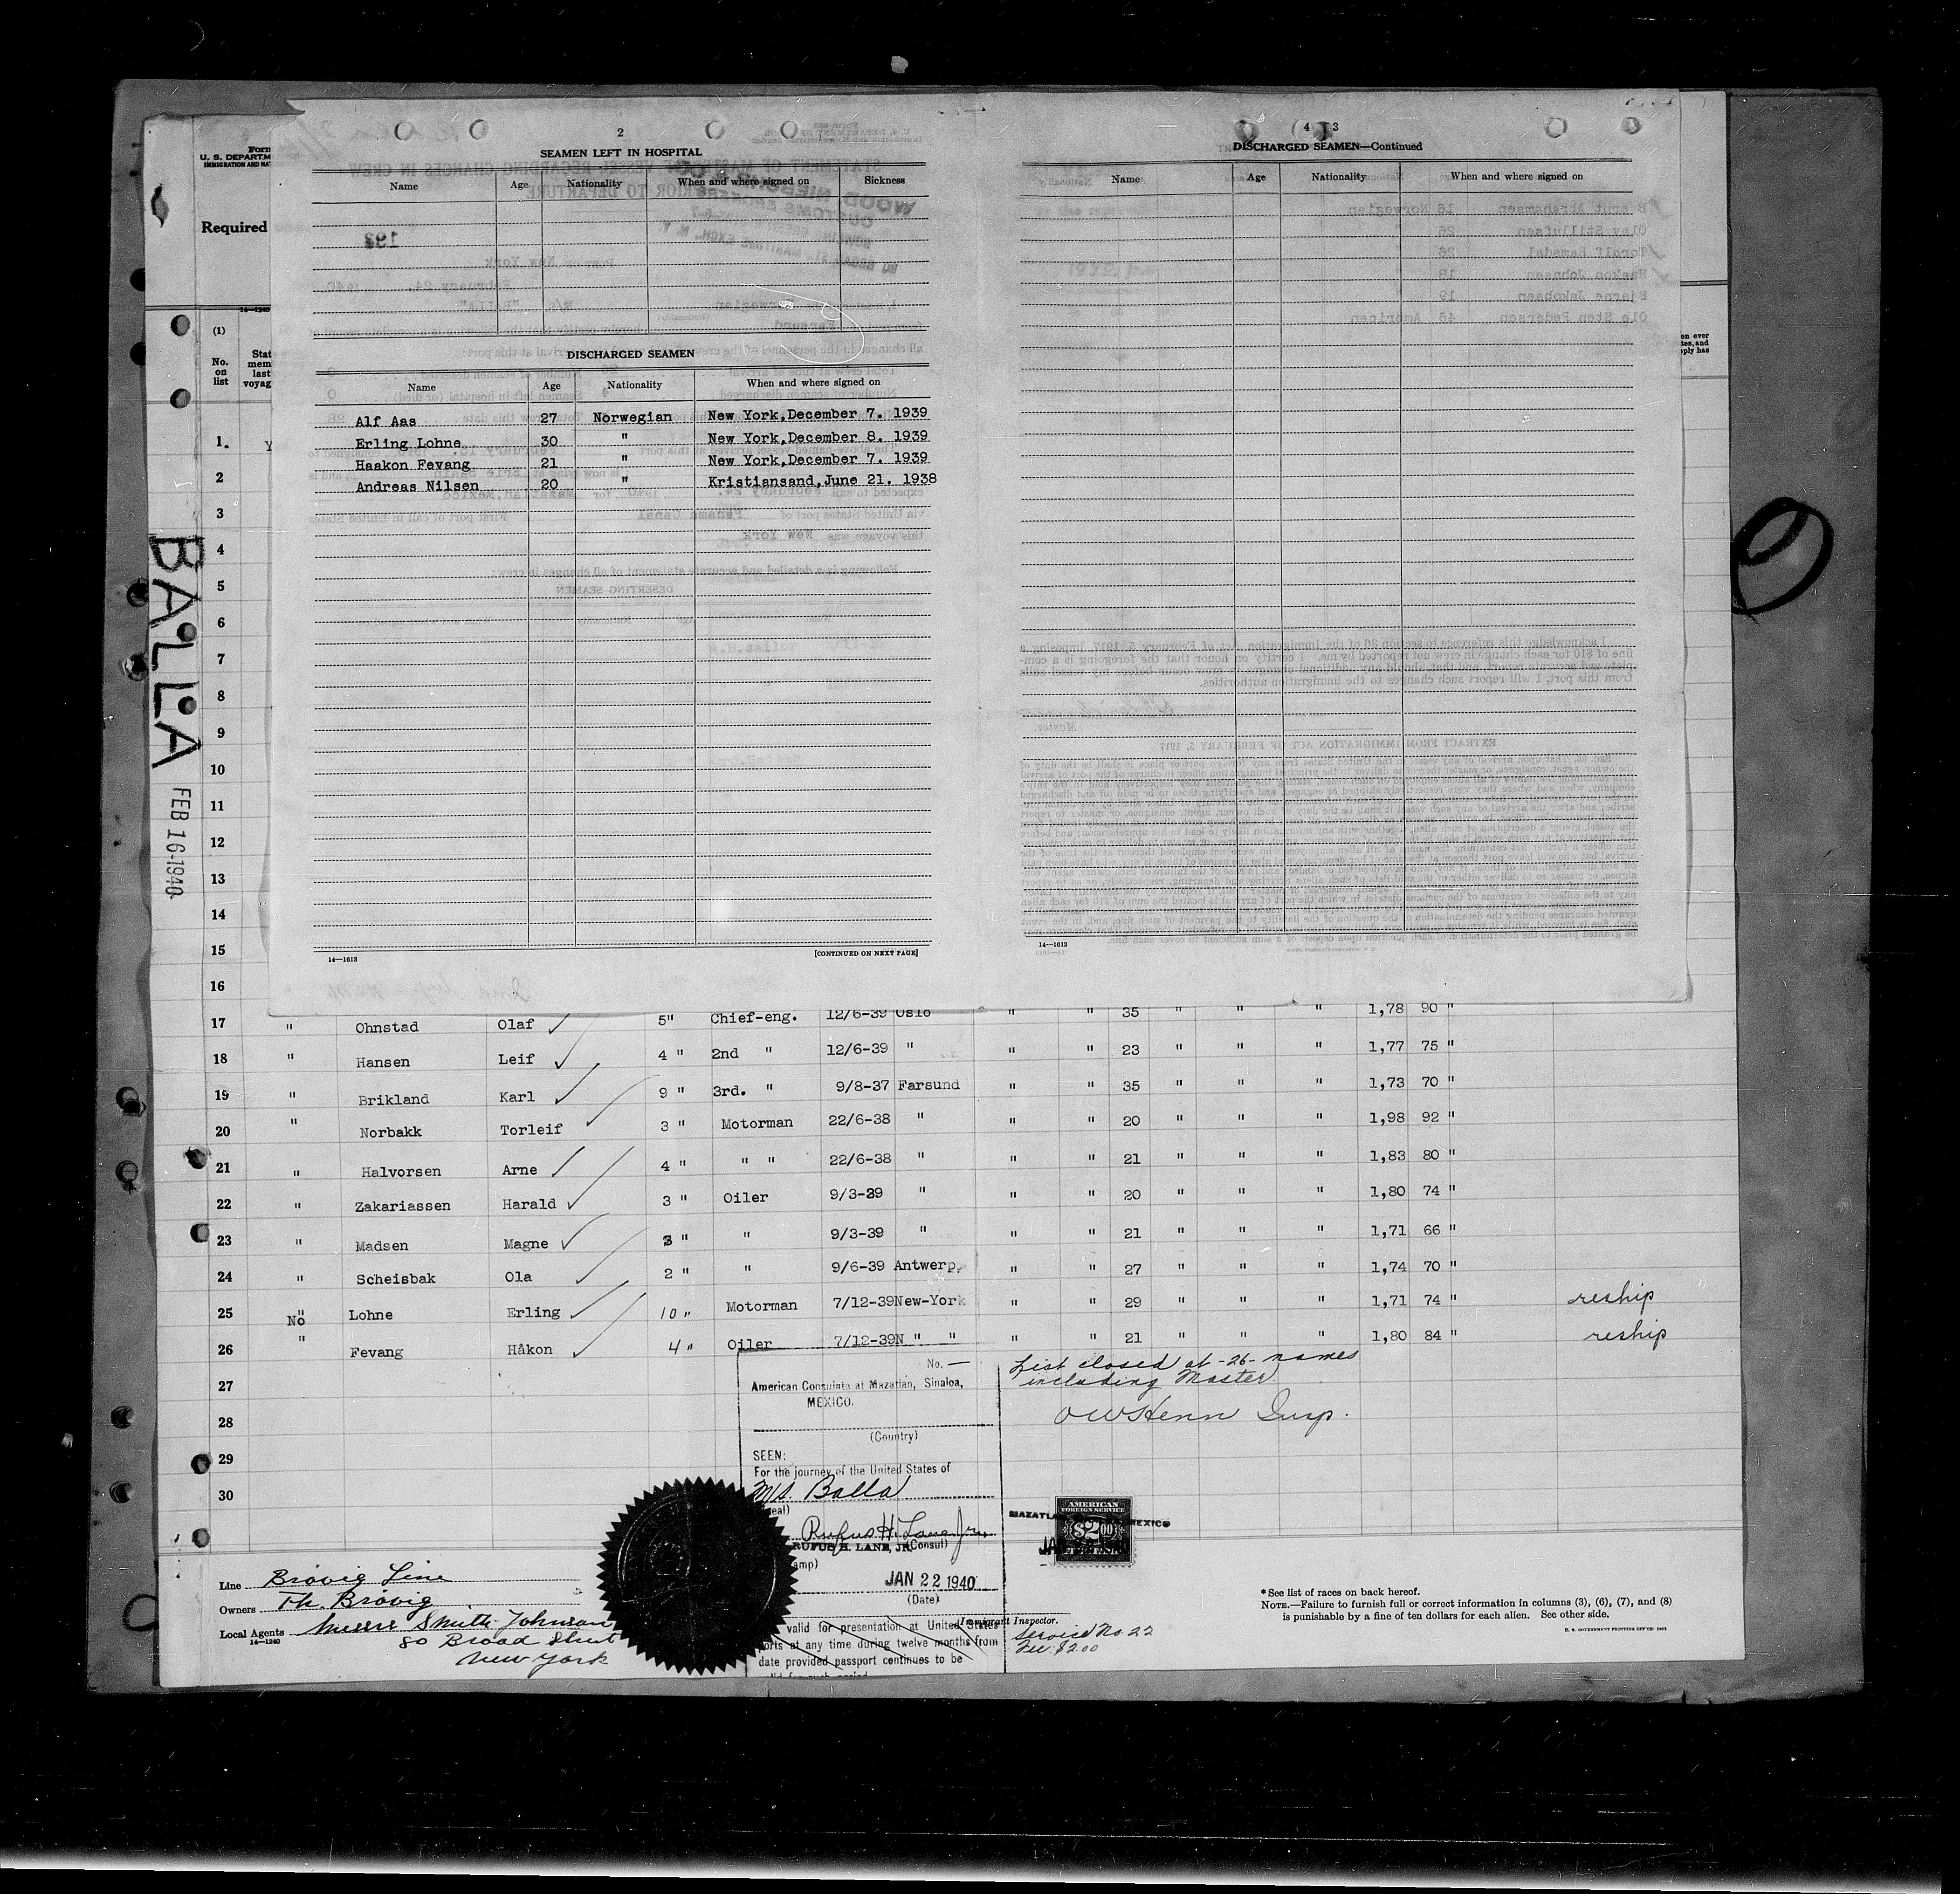 2
SEAMEN LEFT IN HOSPITAL
Name Age Nationality When and where signed on Sickness
DISCHARGED SEAMEN
Name Age Nationality When and where signed on
Alf Aas 27 Norwegian New York,December 7. 1939
Erling Lohne 30 " New York,December 8. 1939
Haakon Fevang 21 " New York,December 7. 1939
Andreas Nilsen 20 " Kristiansand,June 21. 1938
14—1613
[CONTINUED ON NEXT PAGE]
3
DISCHARGED SEAMEN—Continued
Name Age Nationality When and where signed on
14—1613
Form
U. S. DEPARTM
IMMIGRATION AND NAT
Required
14—1240
(1)
No. on list
Stat
mem
last
voyag
BALLA
FEB 16-1940
1.
2
3
4
5
6
7
8
9
10
11
12
13
14
15
16
17 " Ohnstad Olaf 5" Chief-eng. 12/6-39 Oslo " " 35 " " " 1,78 90 "
18 " Hansen Leif 4 " 2nd " 12/6-39 " " " 23 " " " 1,77 75 "
19 " Brikland Karl 9 " 3rd. " 9/8-37 Farsund " " 35 " " " 1,73 70 "
20 " Norbakk Torleif 3 " Motorman 22/6-38 " " " 20 " " " 1,98 92 "
21 " Halvorsen Arne 4 " " " 22/6-38 " " " 21 " " " 1,83 80 "
22 " Zakariassen Harald 3 " Oiler 9/3-39 " " " 20 " " " 1,80 74 "
23 " Madsen Magne 3 " " 9/3-39 " " " 21 " " " 1,71 66 "
24 " Scheisbak Ola 2 " " 9/6-39 Antwerp. " " 27 " " " 1,74 70 "
25 No Lohne Erling 10 " Motorman 7/12-39 New-York " " 29 " " " 1,71 74 " reship
26 " Fevang Håkon 4 " Oiler 7/12-39 N " " " " 21 " " " 1,80 84 " reship
27
28
29
30
List closed at -26- names
including Master
OWHenn Insp.
No. —
American Consulate at Mazatlan, Sinaloa,
MEXICO.
(Country)
SEEN:
For the journey of the United States of
M/S. Balla
Rufus H. Lane Jr.
RUFUS H. LANE, JR. (Consul)
JAN 22 1940
(Date)
valid for presentation at United States
ports at any time during twelve months from
date provided passport continues to be
Immigrant Inspector.
Service No. 22
Fee $2.00
AMERICAN
FOREIGN SERVICE
$2.00
Line Brövig Line
Owners Th. Brövig
Local Agents Messrs Smith-Johnson
80 Broad Street
New York
14—1240
* See list of races on back hereof.
NOTE.—Failure to furnish full or correct information in columns (3), (6), (7), and (8)
is punishable by a fine of ten dollars for each alien. See other side.